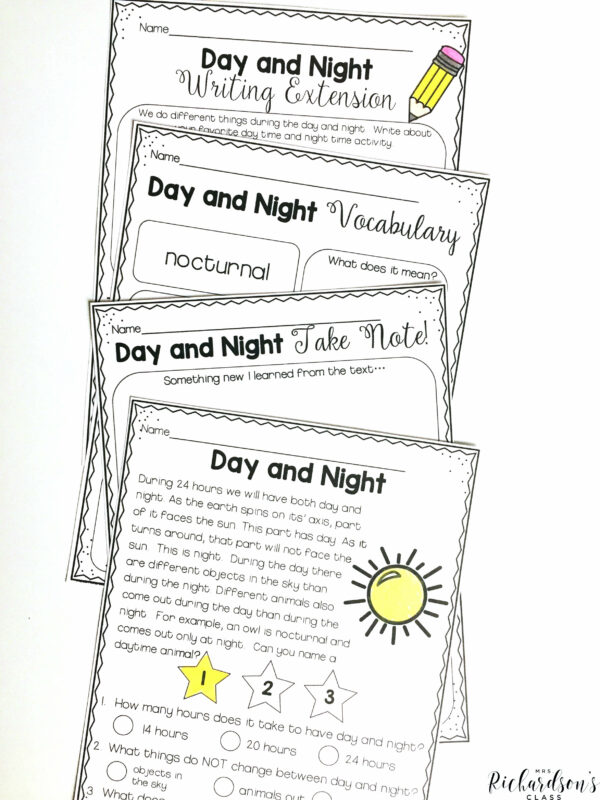 Name
Day and Night
Writing Extension
We do different things during the day and night. Write about
your favorite day time and night time activity.
Name
Day and Night Vocabulary
nocturnal
What does it mean?
Name
Day and Night Take Note!
Something new I learned from the text...
Name
Day and Night
During 24 hours we will have both day and
night. As the earth spins on its' axis, part
of it faces the sun. This part has day. As it
turns around, that part will not face the
sun. This is night. During the day there
are different objects in the sky than
during the night. Different animals also
come out during the day than during the
night. For example, an owl is nocturnal and
comes out only at night. Can you name a
daytime animal?
1 2 3
1. How many hours does it take to have day and night?
14 hours 20 hours 24 hours
2. What things do NOT change between day and night?
objects in
the sky
animals out
3 What does
MRS
Richardson's
CLASS